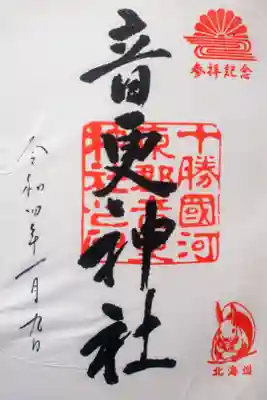 参拝記念
音更神社
十勝國河
東郡音更
令和四年一月九日
北海道